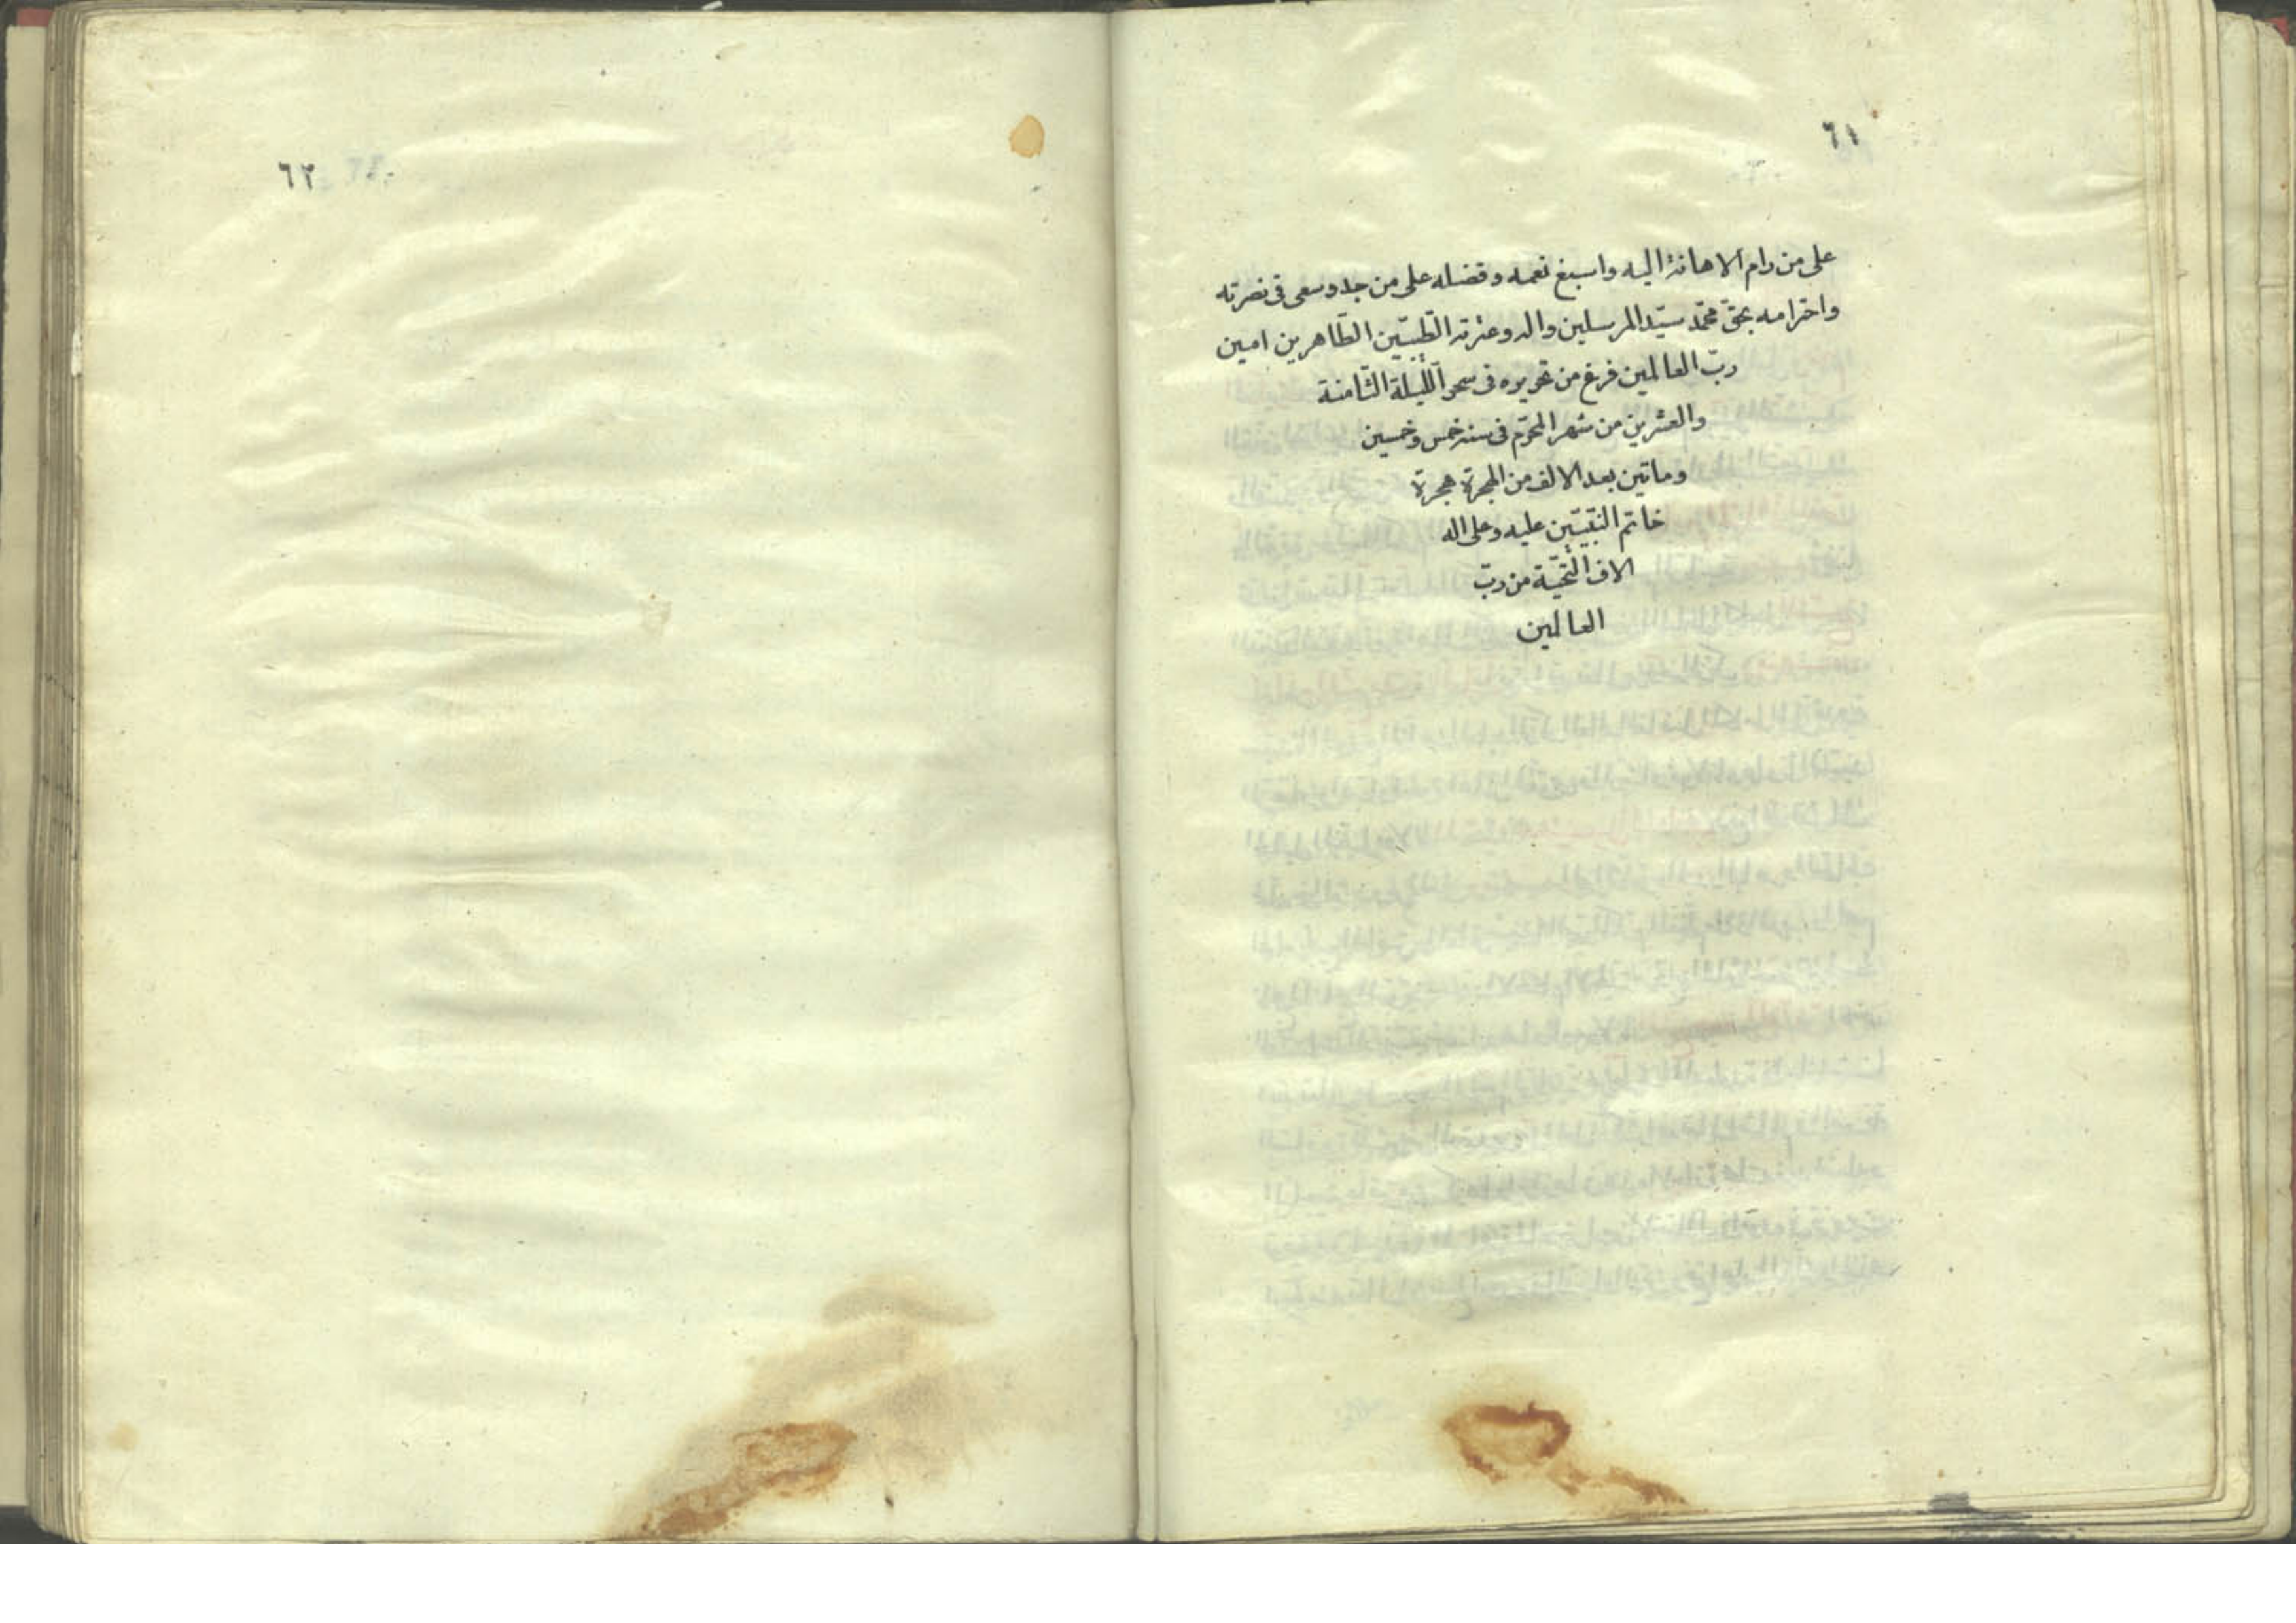 ٦١
على من رام الاهانة اليه واسبغ نعمه وفضله على من جد وسعى فى نصرته
واحترامه بحق محمّد سيّد المرسلين واله وعترته الطّيّبين الطّاهرين امين
ربّ العالمين فرغ من تحريره فى سحر اللّيلة الثّامنة
والعشرين من شهر المحرّم فى سنه خمس وخمسين
وماتين بعد الالف من الهجرة هجرة
خاتم النّبيّين عليه وعلى اله
الاف التّحيّة من ربّ
العالمين
٦٢